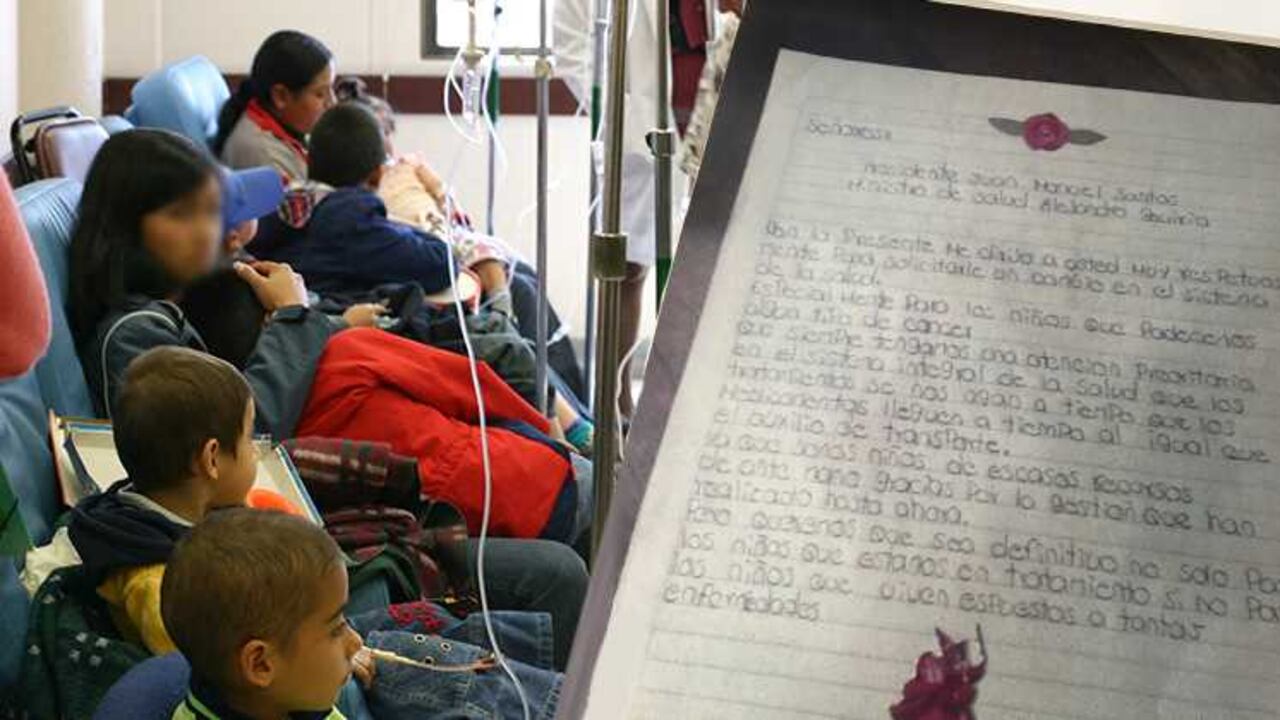 Señores:
Presidente Juan Manuel Santos
Ministro de Salud Alejandro Gaviria
Por la Presente Me dirijo a usted Muy respetuosa
mente Para solicitarle un cambio en el sistema
de la salud.
Especial Mente Para los niños que Padecemos
algun tipo de cancer
que siempre tengamos una atencion Prioritaria
en el sistema integral de la salud que los
tratamientos se nos agan a tiempo que los
Medicamentos lleguen a tiempo al igual que
el auxilio de transporte.
ya que somos niños de escasos recursos
de ante mano gracias Por la gestion que han
realizado hasta ahora.
Pero queremos que sea definitivo no solo Pa
los niños que estamos en tratamiento si no Pa
los niños que viven espuestos a tantas
enfermedades